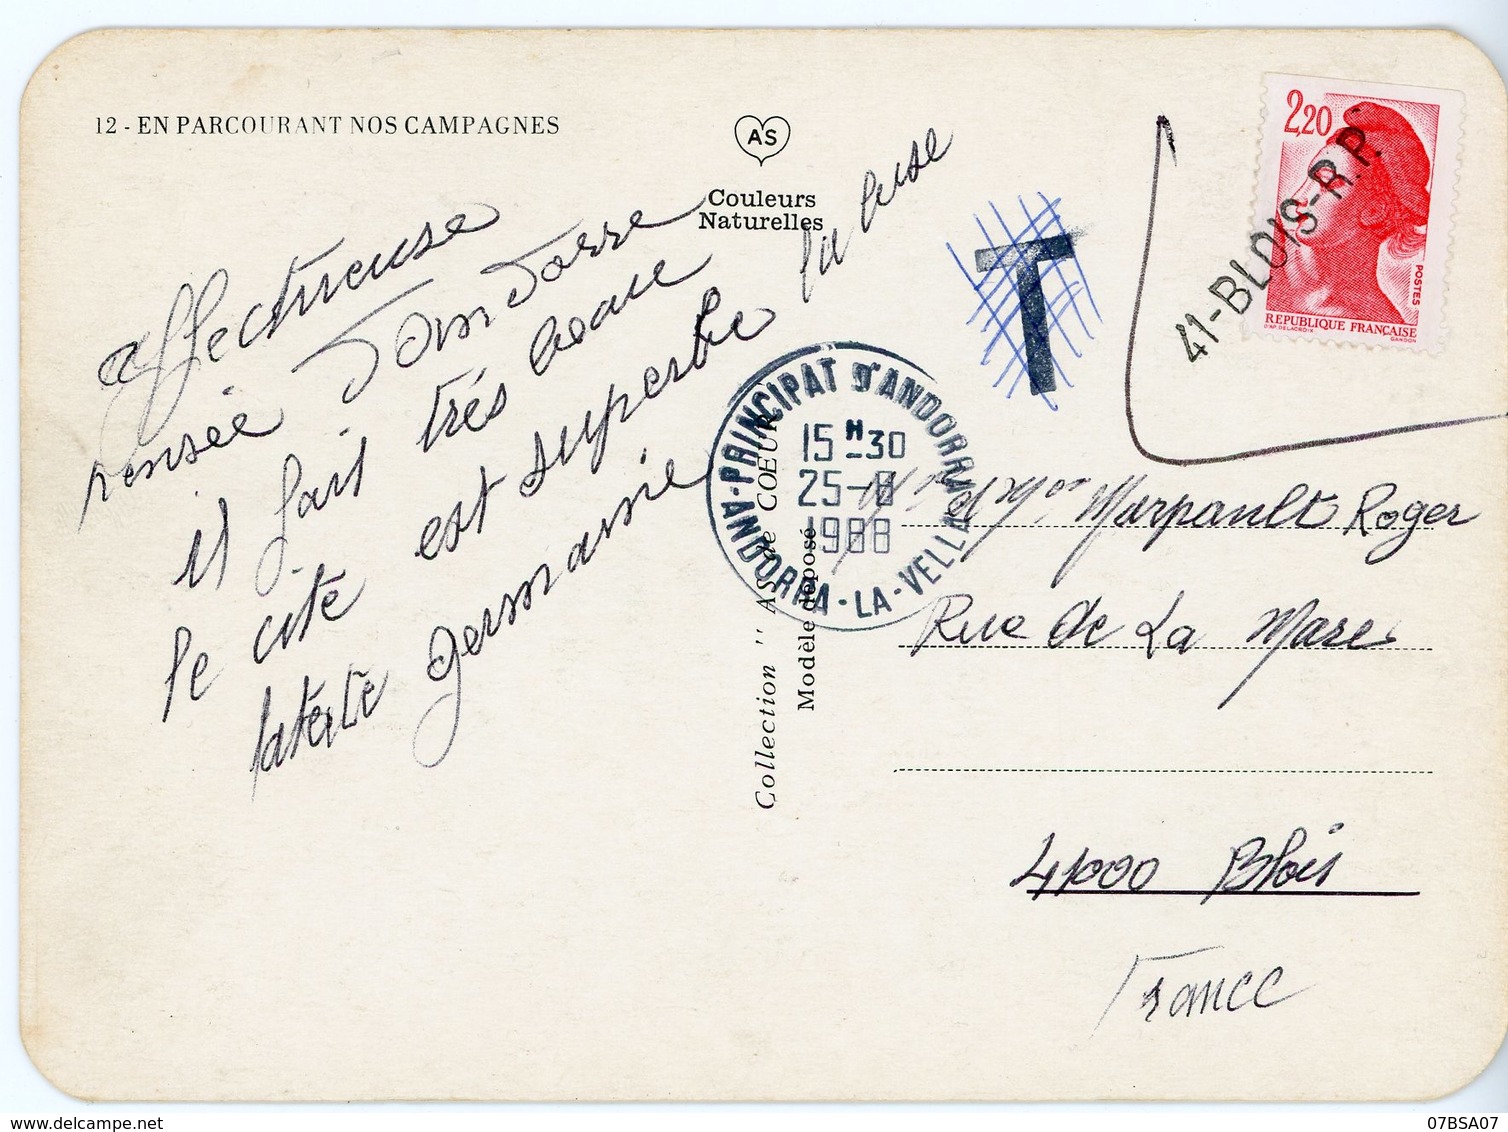 12 - EN PARCOURANT NOS CAMPAGNES
AS
Couleurs
Naturelles
affectueuse
pensée d'andorre
il fait très beau
le cite est superbe la buse
germanie
Collection " AS de CŒUR
Modèle déposé
T
ANDORRA-LA-VELLA-PRINCIPAT D'ANDORRA
15 H 30
25-8
1988
2,20
POSTES
REPUBLIQUE FRANÇAISE
D'AP. DELACROIX
GANDON
41-BLOIS-R.P.
Marpault Roger
Rue de La Mare
41000 Blois
France
07BSA07